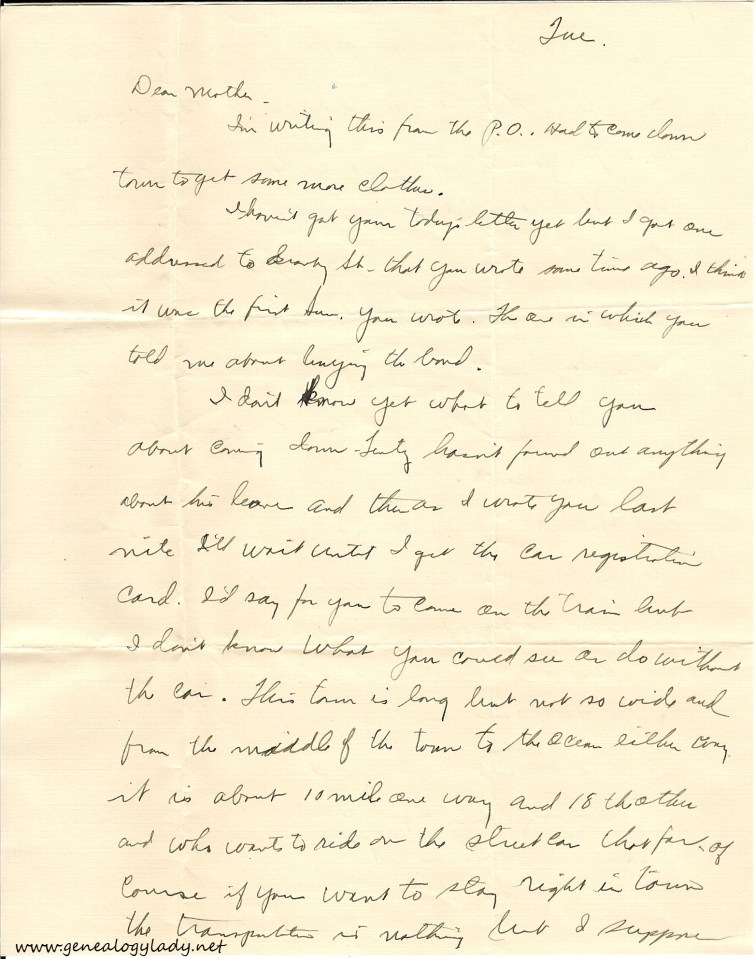 Tue.
Dear Mother -
I'm writing this from the P.O.. Had to come down
town to get some more clothes.
I haven't got your today's letter yet but I got one
addressed to St. that you wrote some time ago. I think
it was the first Sun. you wrote. The one in which you
told me about buying the bond.
I don't know yet what to tell you
about coming down - hasn't found out anything
about his leave and then as I wrote you last
nite I'll wait until I get the car registration
card. I'd say for you to come on the train but
I don't know what you could see or do without
the car. This town is long but not so wide and
from the middle of the town to the ocean either way
it is about 10 mile one way and 18 the other
and who wants to ride on the street car that far. of
course if you want to stay right in town
the transportation is nothing but I suppose
www.genealogylady.net